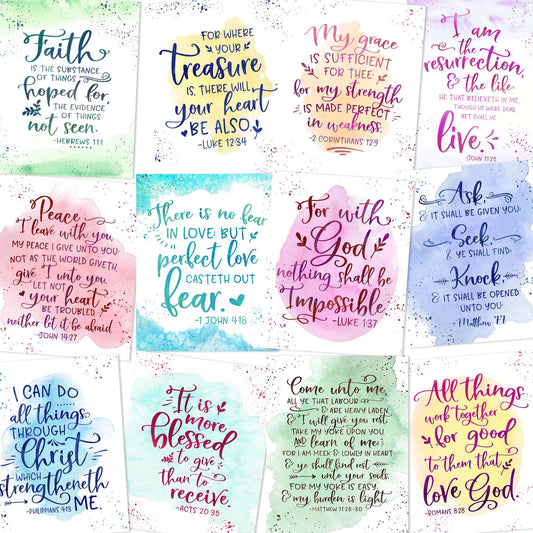 Faith
IS THE SUBSTANCE
OF THINGS
hoped for
THE EVIDENCE
OF THINGS
not seen.
-HEBREWS 11:1
FOR WHERE
YOUR
treasure
IS, THERE WILL
your heart
BE ALSO.
-LUKE 12:34
My grace
IS SUFFICIENT
FOR THEE:
for my strength
IS MADE PERFECT
in weakness.
-2 CORINTHIANS 12:9
I am
the
resurrection,
& the life:
HE THAT BELIEVETH IN ME,
THOUGH HE WERE DEAD
YET SHALL HE
live.
-JOHN 11:25
Peace
I leave with you,
MY PEACE I GIVE UNTO YOU:
NOT AS THE WORLD GIVETH,
give I unto you.
LET NOT
your heart
BE TROUBLED,
neither let it be afraid.
-JOHN 14:27
There is no fear
IN LOVE; BUT
perfect love
CASTETH OUT
fear.
-1 JOHN 4:18
For with
God
nothing shall be
Impossible.
-LUKE 1:37
Ask,
& IT SHALL BE GIVEN YOU;
Seek,
& YE SHALL FIND;
Knock,
& IT SHALL BE OPENED
UNTO YOU:
-Matthew 7:7
I CAN DO
all things
THROUGH
Christ
WHICH
strengtheneth
ME.
-PHILIPPIANS 4:13
It is
more
blessed
to give
than to
receive.
-ACTS 20:35
Come unto me,
ALL YE THAT LABOUR
& ARE HEAVY LADEN,
& I will give you rest.
TAKE MY YOKE UPON YOU,
AND learn of me;
FOR I AM MEEK & LOWLY IN HEART:
& ye shall find rest
unto your souls.
FOR MY YOKE IS EASY,
& my burden is light.
-MATTHEW 11:28-30
All things
work together
for good
to them that
love God.
-ROMANS 8:28